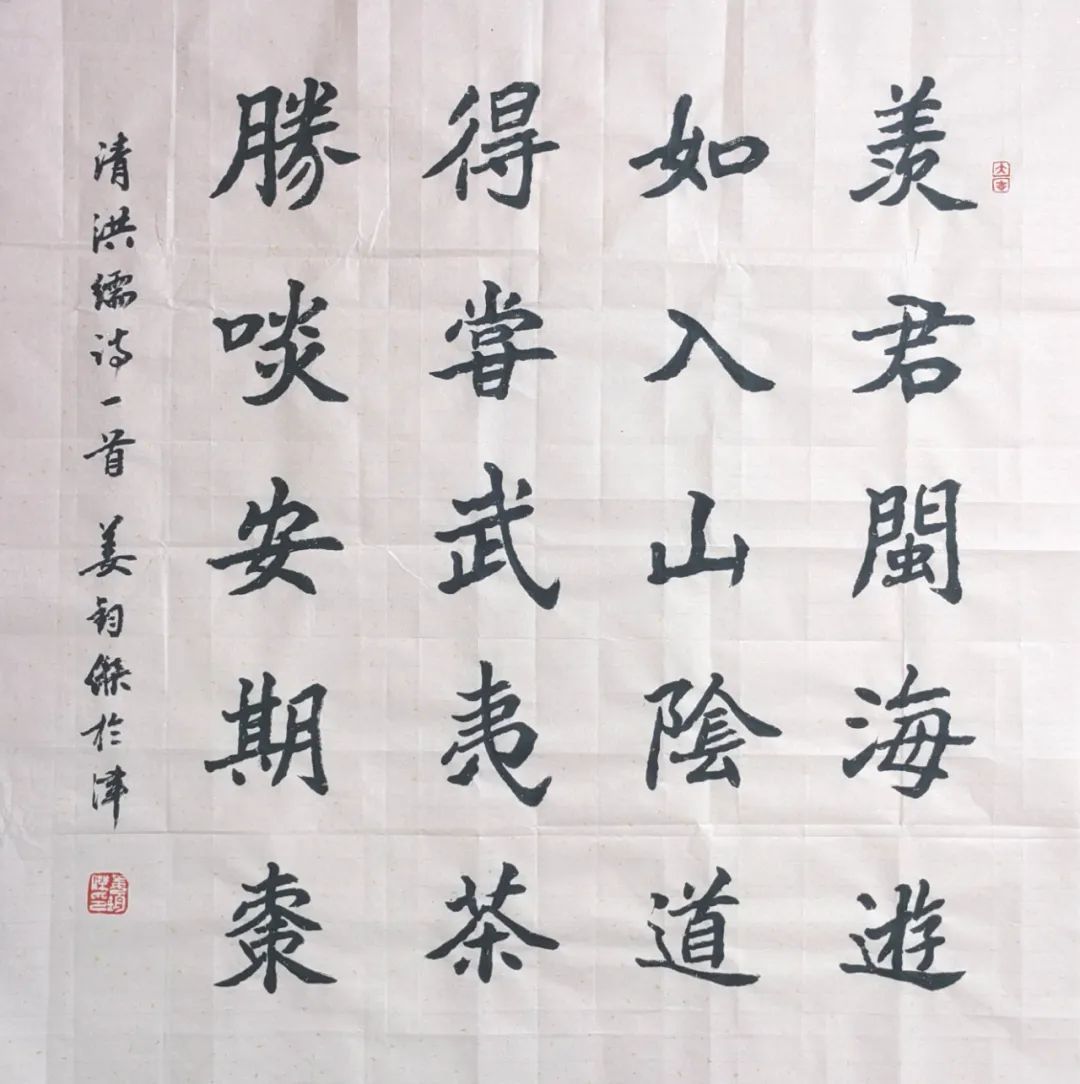 羨君閩海遊
如入山陰道
得嘗武夷茶
勝啖安期棗
清洪繻詩一首 姜鈞傑於津